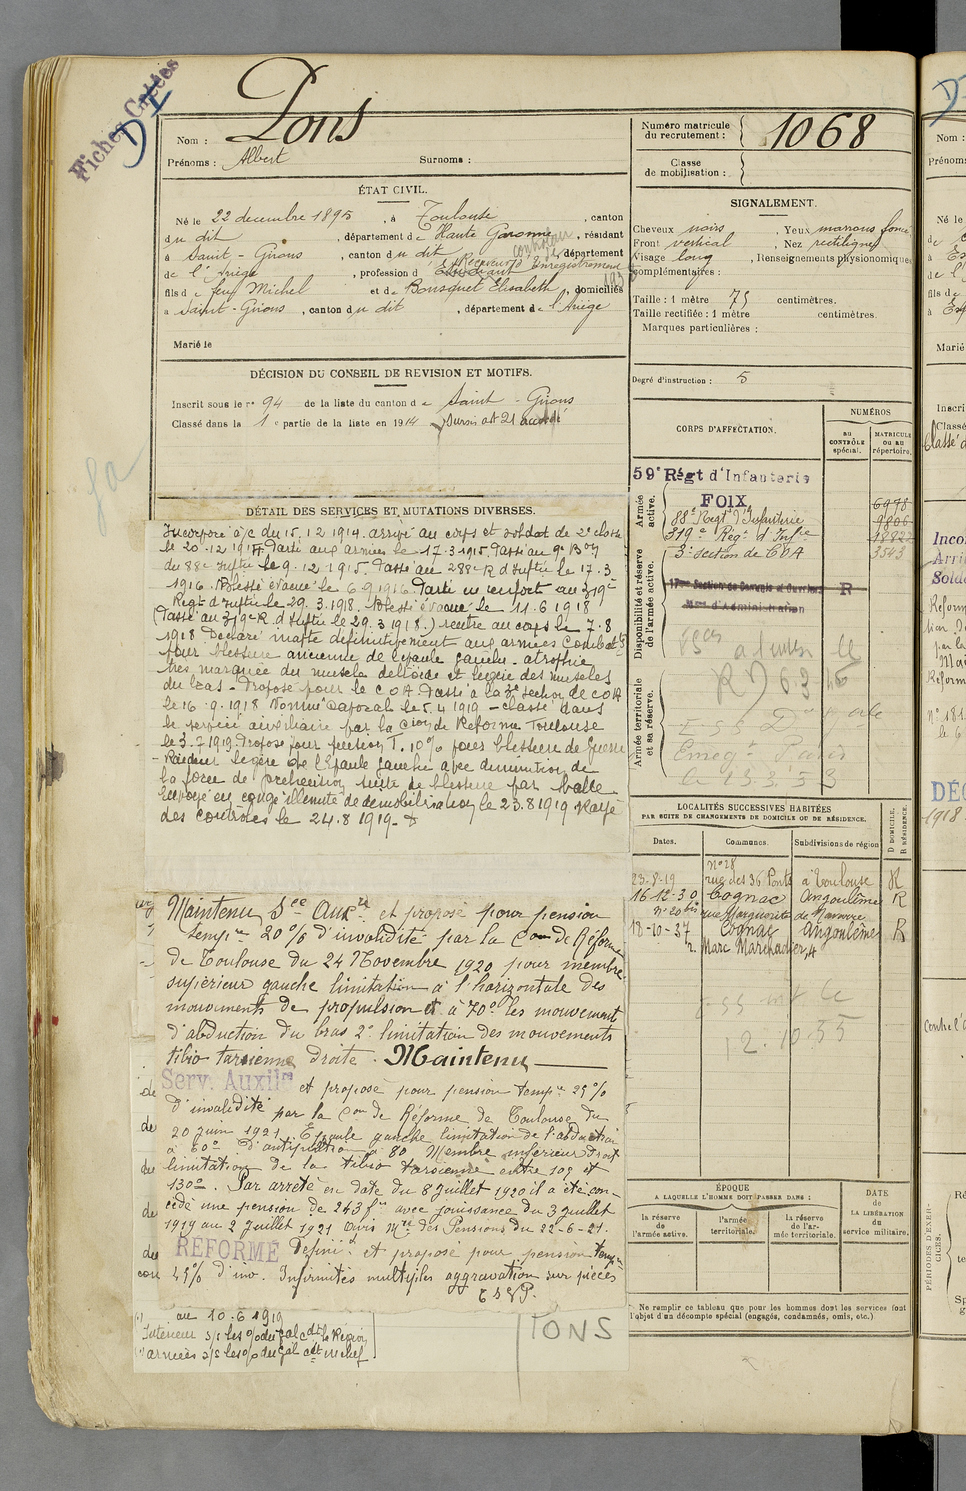 Fiches Cotées
D I
Nom : Pons
Prénoms : Albert Surnoms :
Numéro matricule du recrutement : 1068
Classe de mobilisation :
ÉTAT CIVIL.
Né le 22 decembre 1895, à Toulouse, canton
du dit, département de Haute Garonne, résidant
à Saint-Girons, canton du dit, département
de l'Ariège, profession d Etudiant
Receveur Enregistrement
fils de feu Michel et de Bousquet Elisabeth, domiciliés
à Saint-Girons, canton du dit, département de l'Ariège
Marié le
SIGNALEMENT.
Cheveux noirs, Yeux marrons foncé
Front vertical, Nez rectiligne
Visage long, Renseignements physionomiques
complémentaires :
Taille : 1 mètre 75 centimètres.
Taille rectifiée : 1 mètre centimètres.
Marques particulières :
Degré d'instruction : 5
DÉCISION DU CONSEIL DE REVISION ET MOTIFS.
Inscrit sous le n° 94 de la liste du canton de Saint-Girons
Classé dans la 1e partie de la liste en 1914
CORPS D'AFFECTATION.
NUMÉROS
AU CONTRÔLE spécial.
MATRICULE ou au répertoire.
Armée active.
59e Régt d'Infanterie
FOIX
88e Regt d'Infanterie
319e Rég. d'Infie
3e section de COA
6978
9806
3543
Disponibilité et réserve de l'armée active.
17me Section de Commis et Ouvriers
Mres d'Administration
R
Armée territoriale et sa réserve.
DÉTAIL DES SERVICES ET MUTATIONS DIVERSES.
Incorporé à/c du 15.12 1914. arrivé au corps et soldat de 2e classe
le 20.12 1914. Parti aux armées le 17.3.1915. Passé au 9e Bon
du 88e Inftie le 9.12 1915. Passé au 288e R d'Inftie le 17.3
1916. Blessé évacué le 6.9.1916. Parti en renfort au 319e
Regt d'Inftie le 29.3.1918. Blessé évacué le 11.6 1918
(Passé au 319e R. d'Inftie le 29.3 1918.) rentré au corps le 7.8
1918 Déclaré inapte définitivement aux armées Combattes
pour blessure ancienne de l'épaule gauche. atrophie
très marquée du muscle deltoïde et légère des muscles
du bras. Proposé pour le COA Passé à la 3e section de COA
le 16.9.1918 Nommé Caporal le 5.4 1919 - classé dans
le service auxiliaire par la Cion de Réforme Toulouse
le 3.7 1919. Proposé pour pension T. 10% pour blessure de Guerre
- Raideur légère de l'Epaule gauche avec diminution de
la force de préhension suite de blessure par balle
Envoyé en congé illimité de démobilisation le 23.8 1919 Rayé
des contrôles le 24.8 1919.
Maintenu See Auxre et proposé pour pension
tempre 20% d'invalidité par la Com de Réforme
de Toulouse du 24 Novembre 1920 pour membre
supérieur gauche limitation à l'horizontale des
mouvements de propulsion et à 70° les mouvement
d'abduction du bras 2° limitation des mouvements
tibio tarsienne droite. Maintenu
Serv. Auxilre et proposé pour pension tempre 25%
d'invalidité par la Con de Réforme de Toulouse du
20 juin 1921 Epaule gauche limitation de l'abduction
à 60° d'antépulsion à 80 Membre inférieur droit
limitation de la tibio tarsienne entre 105 et
130°. Par arrêté en date du 8 Juillet 1920 il a été con-
cédé une pension de 243 f avec jouissance du 3 juillet
1919 au 2 Juillet 1921 Avis Mre des Pensions du 22-6-21.
RÉFORMÉ Définit et proposé pour pension temp
25% d'inv. Infirmités multiples aggravation sur pièces
au 10.6 1919
Intérieur s/s les o/ du gal cdt la Région
armées s/s les o/ du gal cdt en chef
PONS
LOCALITÉS SUCCESSIVES HABITÉES
PAR SUITE DE CHANGEMENTS DE DOMICILE OU DE RÉSIDENCE.
Dates. Communes. Subdivisions de région D DOMICILE. R RÉSIDENCE.
n° 28
23-8-19 rue des 36 Ponts à Toulouse R
16-12-30 Cognac Angoulême R
n° 20 bis rue Marguerite de Navarre
18-10-37 Cognac Angoulême R
r. Marc Marchadier, 4
12.10.55
ÉPOQUE
A LAQUELLE L'HOMME DOIT PASSER DANS :
la réserve de l'armée active.
l'armée territoriale.
la réserve de l'armée territoriale.
DATE DE LA LIBÉRATION du service militaire.
Ne remplir ce tableau que pour les hommes dont les services font
l'objet d'un décompte spécial (engagés, condamnés, omis, etc.)